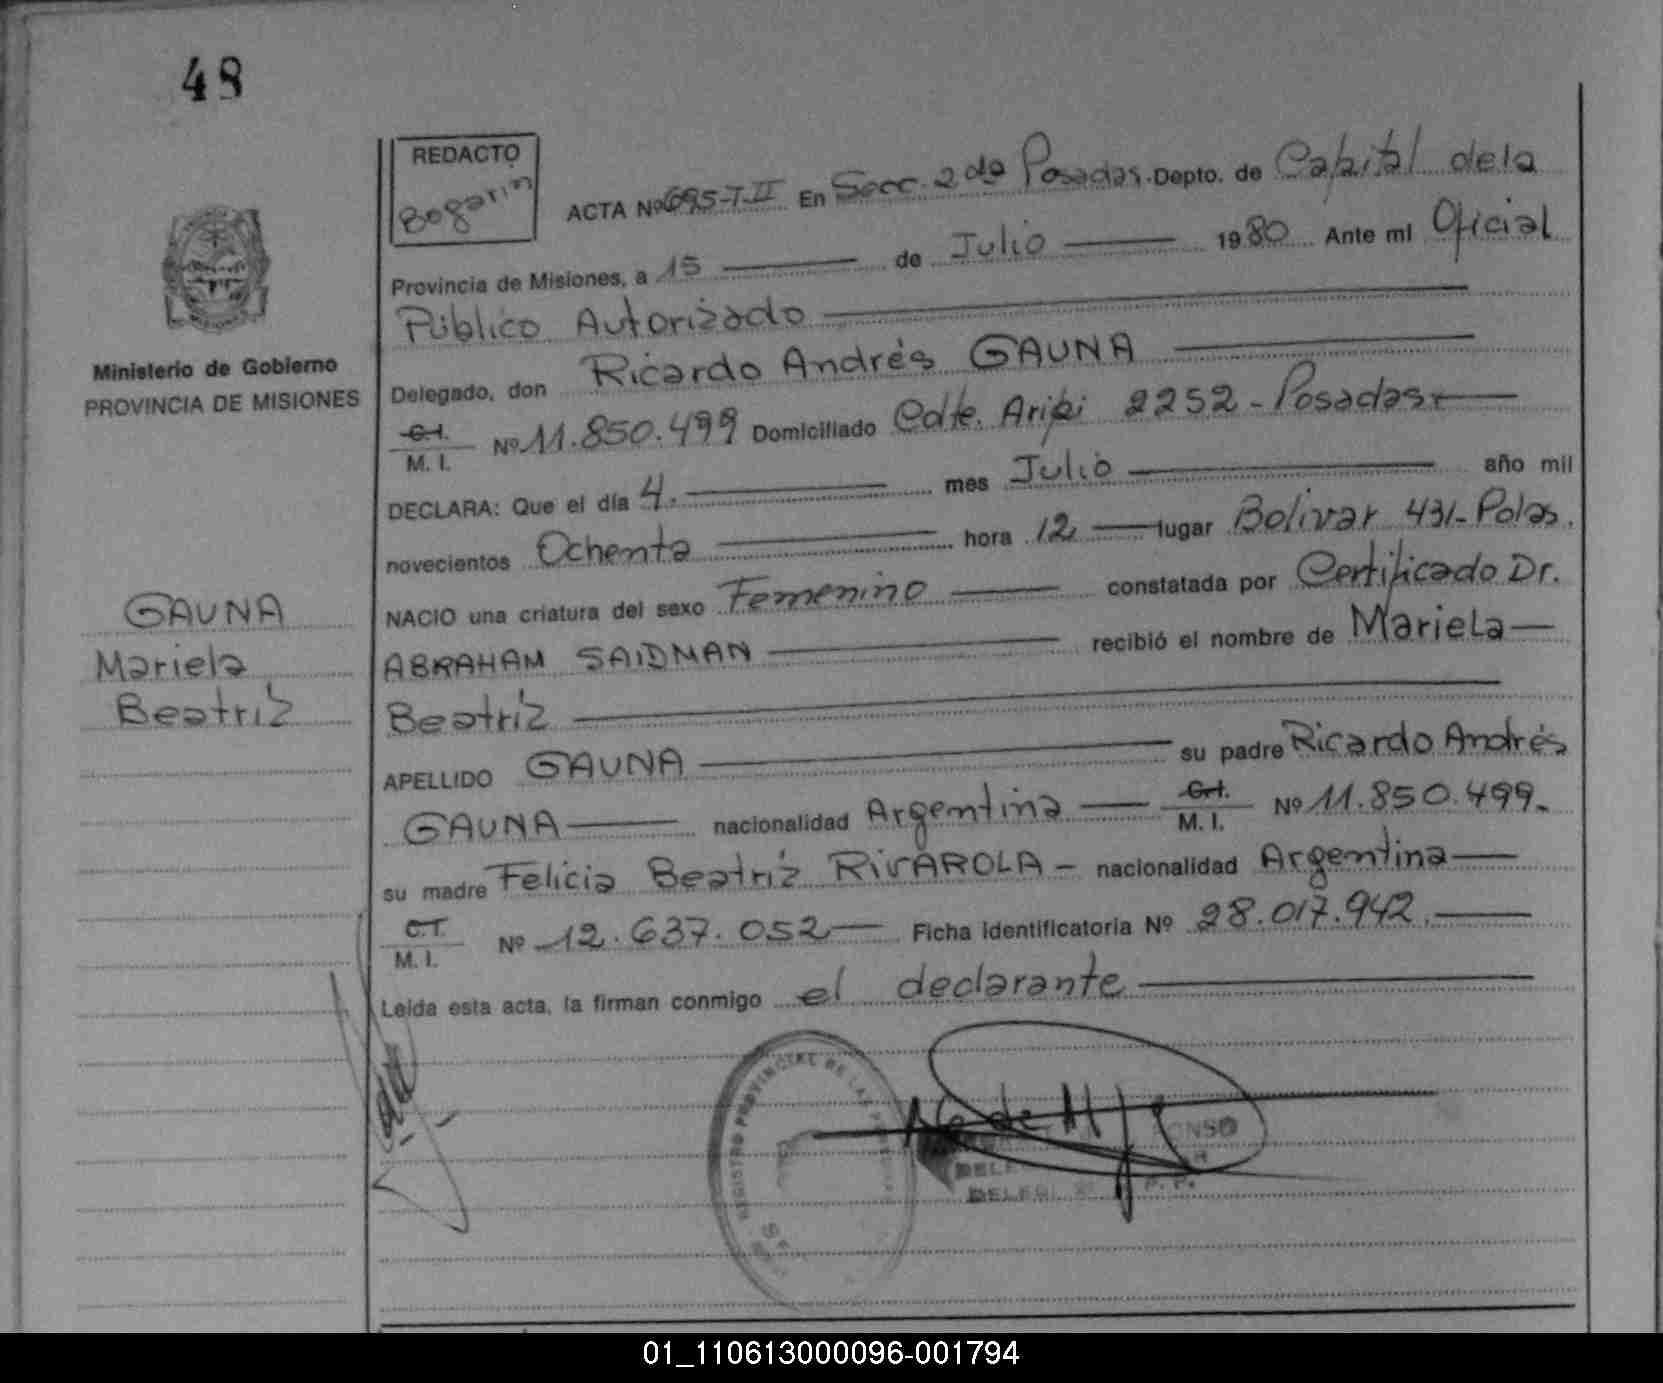 48
REDACTO
Bogarin
ACTA Nº 695-T-II En Secc. 2da Posadas. Depto. de Capital de la
Provincia de Misiones, a 15 de Julio 1980 Ante mi Oficial
Público Autorizado
Delegado, don Ricardo Andrés GAUNA
C.I.
M. I. Nº 11.850.499 Domiciliado Cdte. Aripi 2252 - Posadas
DECLARA: Que el día 4. mes Julio año mil
novecientos Ochenta hora 12 lugar Bolivar 431-Pdas.
NACIO una criatura del sexo Femenino constatada por Certificado Dr.
ABRAHAM SAIDMAN recibió el nombre de Mariela
Beatriz
APELLIDO GAUNA su padre Ricardo Andrés
GAUNA nacionalidad Argentina C.I.
M. I. Nº 11.850.499.
su madre Felicia Beatriz RIVAROLA - nacionalidad Argentina
C.I.
M. I. Nº 12.637.052 Ficha identificatoria Nº 28.017.942.
Leida esta acta, la firman conmigo el declarante
Ministerio de Gobierno
PROVINCIA DE MISIONES
GAUNA
Mariela
Beatriz
REGISTRO PROVINCIAL DE LAS PERSONAS
01_110613000096-001794